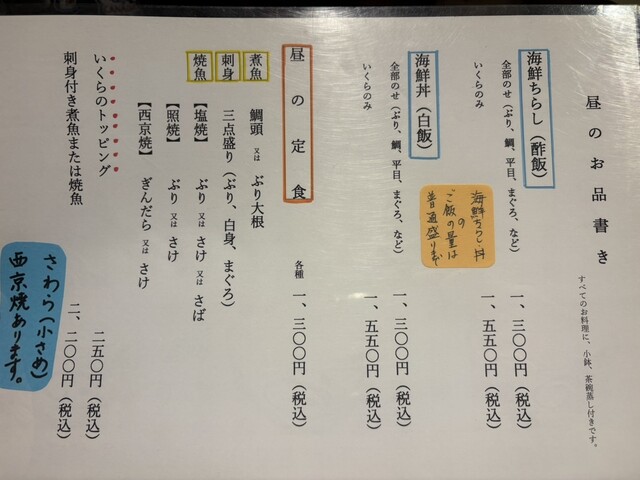 昼のお品書き
すべてのお料理に、小鉢、茶碗蒸し付きです。
海鮮ちらし（酢飯）
全部のせ（ぶり、鯛、平目、まぐろ、など） 一、三〇〇円（税込）
いくらのみ 一、五五〇円（税込）
海鮮ちらし、丼
の
ご飯の量は
普通盛りまで
海鮮丼（白飯）
全部のせ（ぶり、鯛、平目、まぐろ、など） 一、三〇〇円（税込）
いくらのみ 一、五五〇円（税込）
昼の定食 各種 一、三〇〇円（税込）
煮魚 鯛頭 又は ぶり大根
刺身 三点盛り（ぶり、白身、まぐろ）
焼魚 【塩焼】 ぶり 又は さけ 又は さば
【照焼】 ぶり 又は さけ
【西京焼】 ぎんだら 又は さけ
いくらのトッピング 二五〇円（税込）
刺身付き煮魚または焼魚 二、二〇〇円（税込）
さわら（小さめ）
西京焼あります。